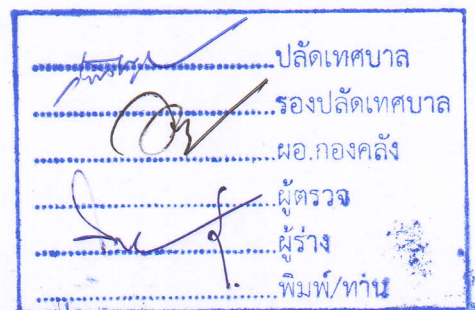 ปลัดเทศบาล
รองปลัดเทศบาล
ผอ.กองคลัง
ผู้ตรวจ
ผู้ร่าง
พิมพ์/ทาน